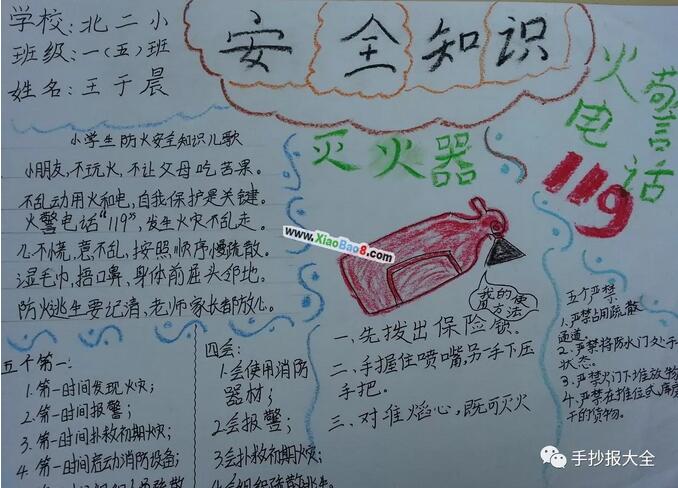 学校:北二小
班级:一(五)班
姓名:王于晨
安全知识
火警
电话
119
小学生防火安全知识儿歌
小朋友,不玩火,不让父母吃苦果。
不乱动用火和电,自我保护是关键。
火警电话"119",发生火灾不乱走。
心不慌,意不乱,按照顺序慢疏散。
湿毛巾,捂口鼻,身体前屈头邻地。
防火逃生要记清,老师家长都放心。
灭火器
www.XiaoBao8.com
我的使用方法
一、先拨出保险锁。
二、手握住喷嘴,另一手下压
手把。
三、对准焰心,既可灭火
五个第一:
1.第一时间发现火灾;
2.第一时间报警;
3.第一时间扑救初期火灾;
4.第一时间启动消防设备;
四会:
1.会使用消防
器材;
2.会报警;
3.会扑救初期火灾;
4.会组织疏散逃生。
五个严禁
1.严禁占用疏散
通道。
2.严禁将防火门处于
状态。
3.严禁火门下堆放物
4.严禁在推位式库房
干的货物。
手抄报大全